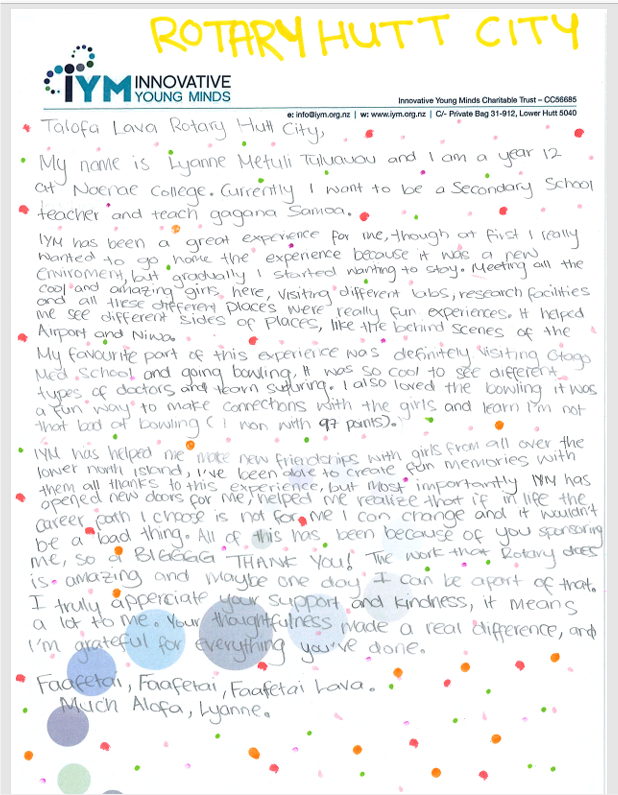 ROTARY HUTT CITY
IYM INNOVATIVE
YOUNG MINDS
Innovative Young Minds Charitable Trust – CC56685
e: info@iym.org.nz | w: www.iym.org.nz | C/- Private Bag 31-912, Lower Hutt 5040
Talofa Lava Rotary Hutt City,
My name is Lyanne Metuli and I am a year 12
at Naenae College. Currently I want to be a Secondary School
teacher and teach gagana Samoa.
IYM has been a great experience for me, though at first I really
wanted to go home the experience because it was a new
enviroment, but gradually I started wanting to stay. Meeting all the
cool and amazing girls, here, visiting different labs, research facilities
and all these different places were really fun experiences. It helped
me see different sides of places, like the behind scenes of the
Airport and Niwa.
My favourite part of this experience was definitely visiting Otago
Med School and going bowling, it was so cool to see different
types of doctors and learn suturing. I also loved the bowling it was
a fun way to make connections with the girls and learn I'm not
that bad at bowling (I won with 97 points).
IYM has helped me make new friendships with girls from all over the
lower north island, I've been able to create fun memories with
them all thanks to this experience, but most importantly IYM has
opened new doors for me, helped me realize that if in life the
career path I choose is not for me I can change and it wouldn't
be a bad thing. All of this has been because of you sponsoring
me, so a BIGGGG THANK YOU! The work that Rotary does
is amazing and maybe one day I can be apart of that.
I truly apperciate your support and kindness, it means
a lot to me. Your thoughtfulness made a real difference, and
I'm grateful for everything you've done.
Faafetai, Faafetai, Faafetai Lava.
Much Alofa, Lyanne.